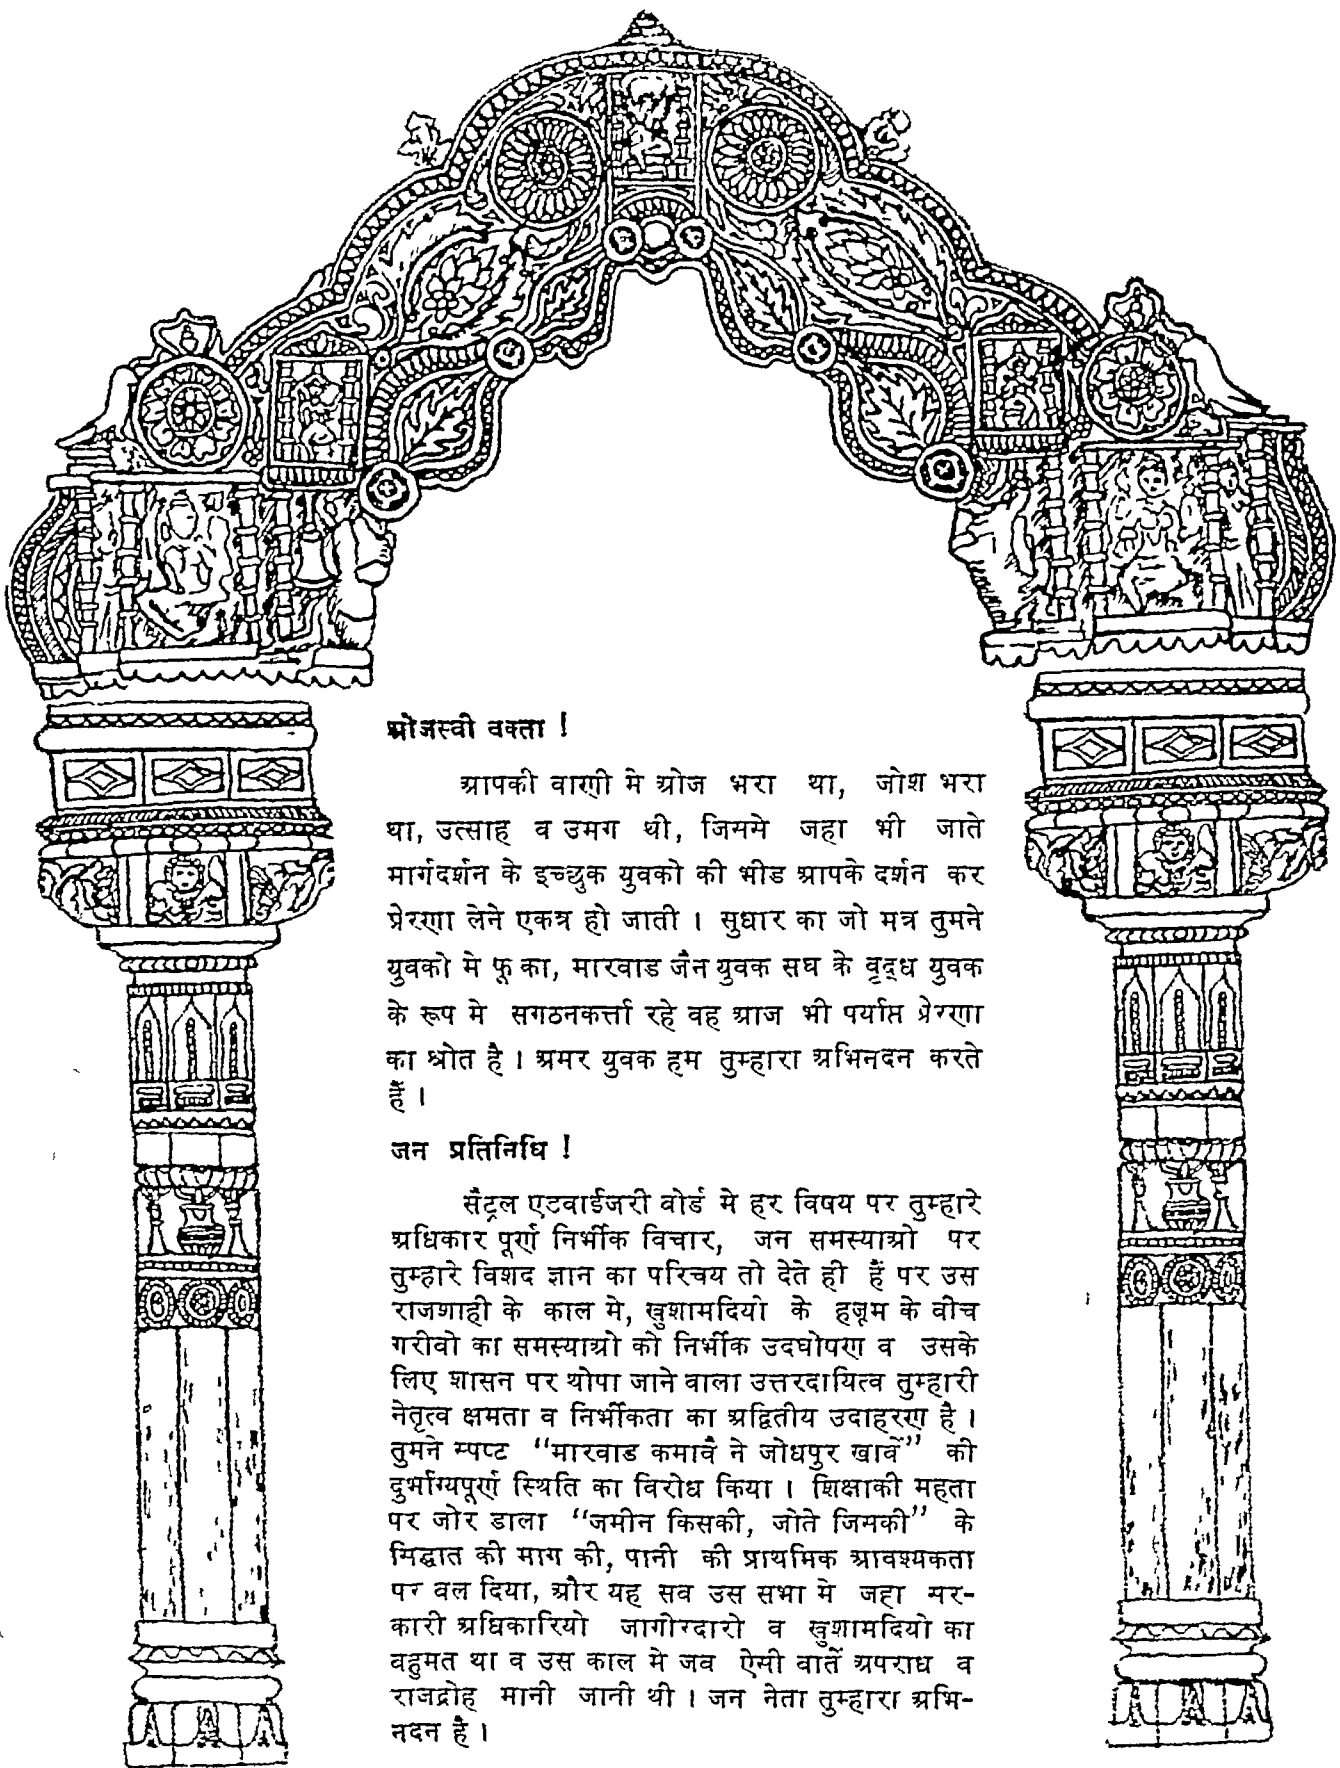 ओजस्वी वक्ता !
आपकी वाणी मे ओज भरा था, जोश भरा
था, उत्साह व उमग थी, जिसमे जहा भी जाते
मार्गदर्शन के इच्छुक युवको की भीड आपके दर्शन कर
प्रेरणा लेने एकत्र हो जाती । सुधार का जो मत्र तुमने
युवको मे फू का, मारवाड जैन युवक सघ के वृद्ध युवक
के रूप मे सगठनकर्त्ता रहे वह आज भी पर्याप्त प्रेरणा
का श्रोत है । अमर युवक हम तुम्हारा अभिनदन करते
हैं ।
जन प्रतिनिधि !
सैंट्रल एटवाईजरी वोर्ड मे हर विषय पर तुम्हारे
अधिकार पूर्ण निर्भीक विचार, जन समस्याओ पर
तुम्हारे विशद ज्ञान का परिचय तो देते ही हैं पर उस
राजशाही के काल मे, खुशामदियो के हजूम के वीच
गरीवो का समस्याओ को निर्भीक उदघोषण व उसके
लिए शासन पर थोपा जाने वाला उत्तरदायित्व तुम्हारी
नेतृत्व क्षमता व निर्भीकता का अद्वितीय उदाहरण है ।
तुमने स्पष्ट “मारवाड कमावै ने जोधपुर खावें” की
दुर्भाग्यपूर्ण स्थिति का विरोध किया । शिक्षाकी महता
पर जोर डाला “जमीन किसकी, जोते जिसकी” के
सिद्धात की माग की, पानी की प्राथमिक आवश्यकता
पर वल दिया, और यह सव उस सभा मे जहा सर-
कारी अधिकारियो जागीरदारो व खुशामदियो का
वहुमत था व उस काल मे जव ऐसी वातें अपराध व
राजद्रोह मानी जाती थी । जन नेता तुम्हारा अभि-
नदन है ।